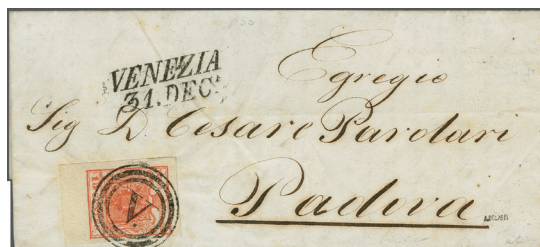 VENEZIA
31. DEC.
Egregio
Sig D. Cesare Parolari
Padova